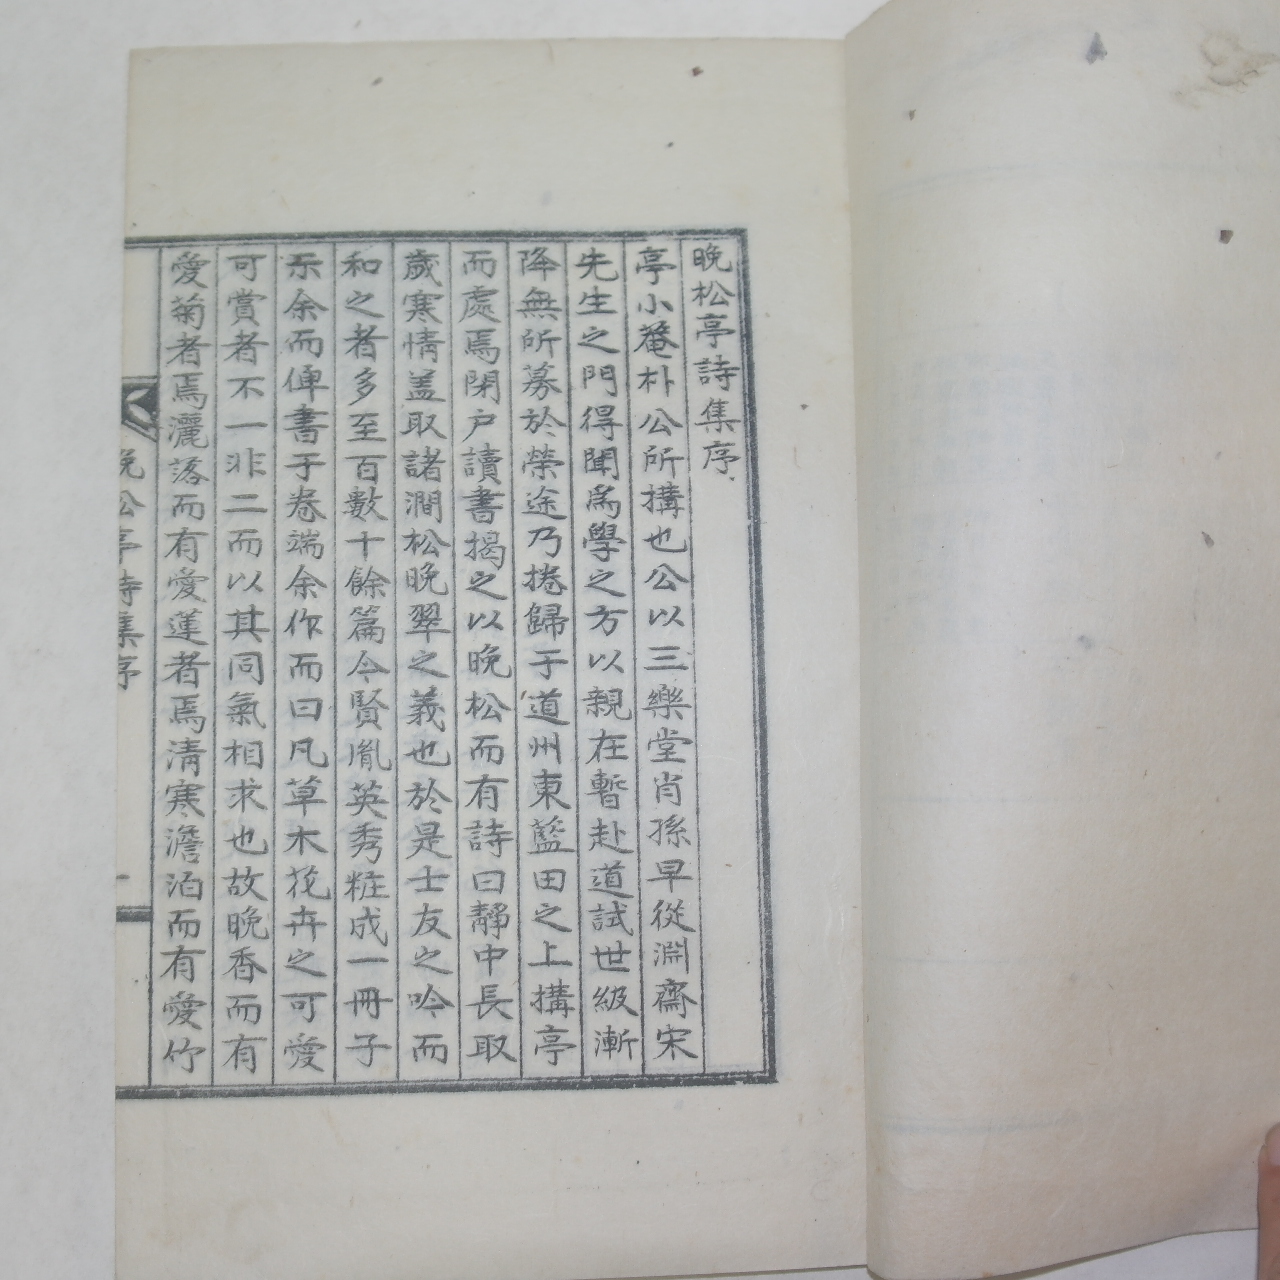 晚松亭詩集序
亭小菴朴公所搆也公以三樂堂肖孫早從淵齋宋
先生之門得聞爲學之方以親在暫赴道試世級漸
降無所募於榮途乃捲歸于道州東藍田之上搆亭
而處焉閉户讀書揭之以晚松而有詩曰靜中長取
歲寒情盖取諸澗松晚翠之義也於是士友之吟而
和之者多至百數十餘篇今賢胤英秀粧成一冊子
示余而俾書于卷端余作而曰凡草木花卉之可愛
可賞者不一非二而以其同氣相求也故晚香而有
愛菊者焉灑落而有愛蓮者焉清寒澹泊而有愛竹
晚松亭詩集序
一